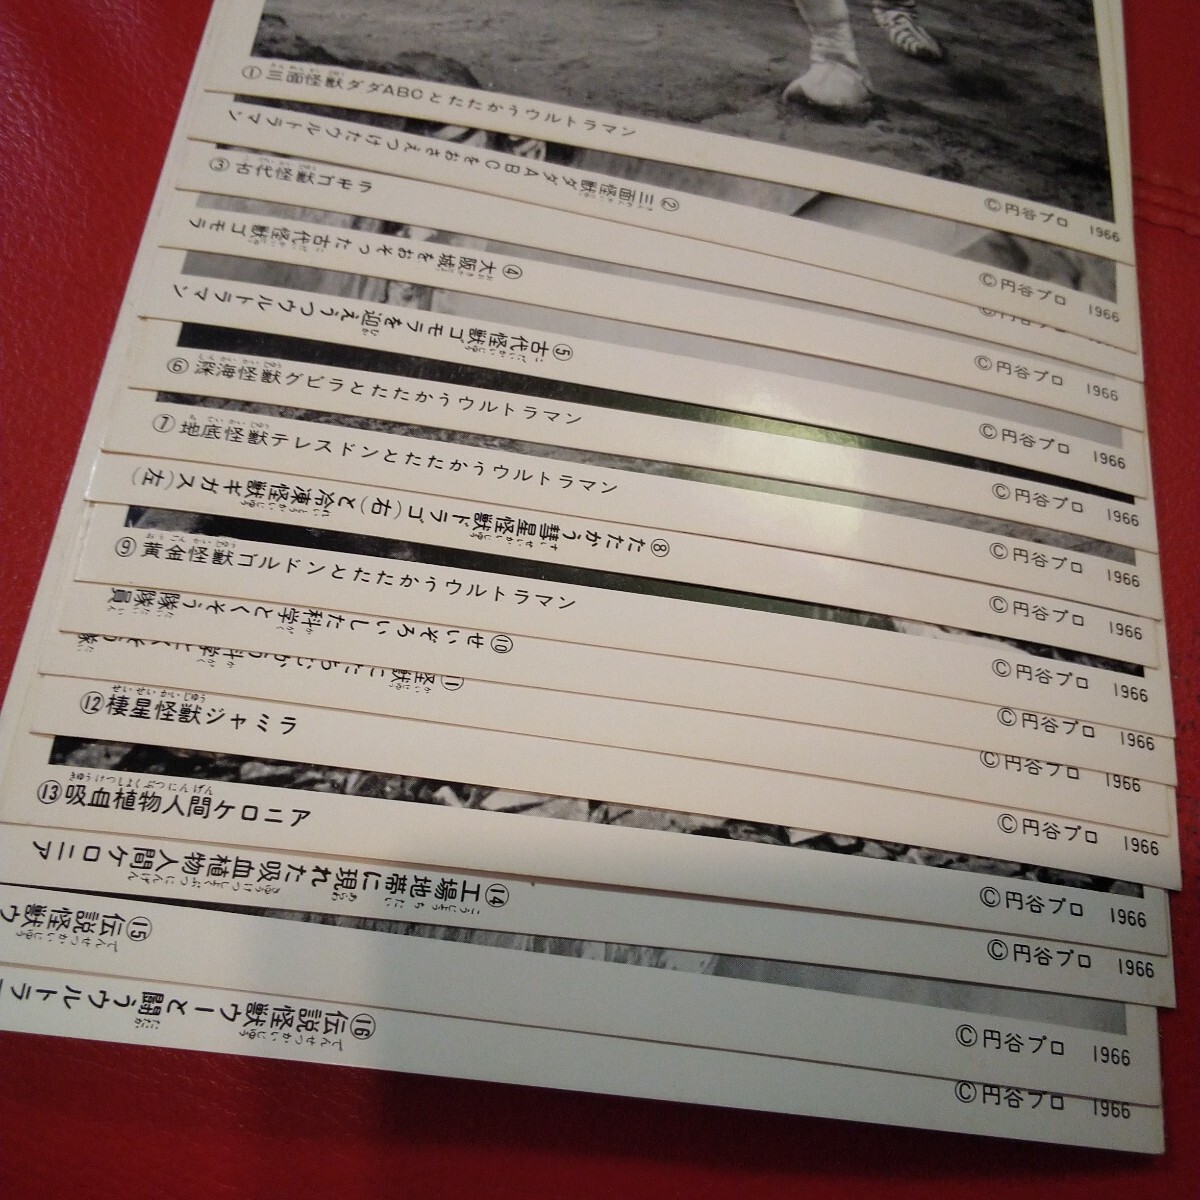 ①三面怪獣ダダABCとたたかうウルトラマン
©円谷プロ 1966
②三面怪獣ダダABCをおさえつけたウルトラマン
©円谷プロ 1966
③古代怪獣ゴモラ
©円谷プロ
④大阪城をおそった古代怪獣ゴモラ
©円谷プロ 1966
⑤古代怪獣ゴモラを迎えうつウルトラマン
©円谷プロ 1966
⑥深海怪獣グビラとたたかうウルトラマン
©円谷プロ 1966
⑦地底怪獣テレスドンとたたかうウルトラマン
©円谷プロ 1966
⑧たたかう彗星怪獣ドラゴ(右)と冷凍怪獣ギガス(左)
©円谷プロ 1966
⑨黄金怪獣ゴルドンとたたかうウルトラマン
©円谷プロ 1966
⑩せいぞろいした科学とくそう隊隊員
©円谷プロ 1966
⑪怪獣にたちむかう科学とくそう隊
©円谷プロ 1966
⑫棲星怪獣ジャミラ
せいせいかいじゅう
©円谷プロ 1966
⑬吸血植物人間ケロニア
きゅうけつしょくぶつにんげん
©円谷プロ 1966
⑭工場地帯に現れた吸血植物人間ケロニア
©円谷プロ 1966
⑮伝説怪獣ウ
でんせつかいじゅう
©円谷プロ 1966
⑯伝説怪獣ウーと闘うウルトラ
でんせつかいじゅう
©円谷プロ 1966